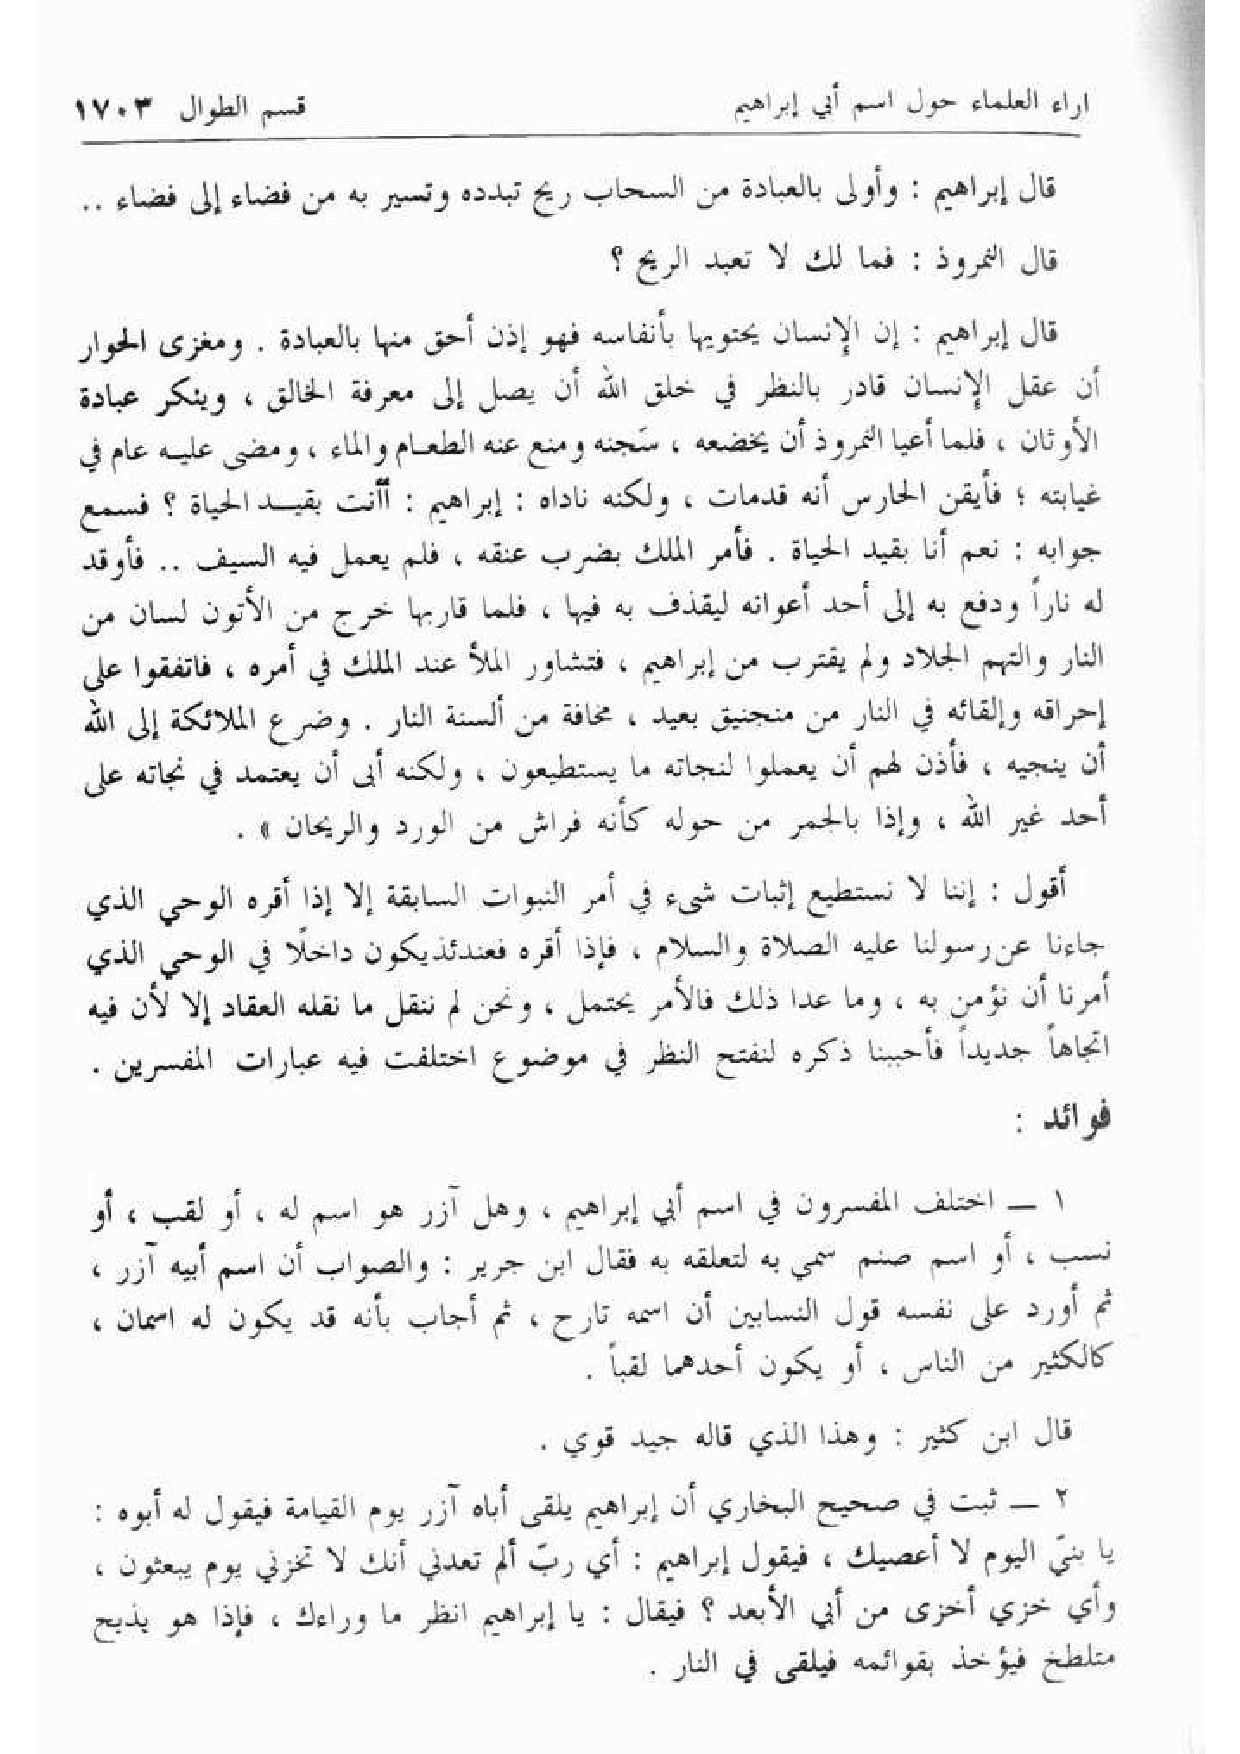 اراء العلماء حول اسم أبي إبراهيم قسم الطوال ١٧٠٣
قال إبراهيم : وأولى بالعبادة من السحاب ريح تبدده وتسير به من فضاء إلى فضاء ..
قال النمروذ : فما لك لا تعبد الريح ؟
قال إبراهيم : إن الإنسان يحتويها بأنفاسه فهو إذن أحق منها بالعبادة . ومغزى الحوار
أن عقل الإنسان قادر بالنظر في خلق الله أن يصل إلى معرفة الخالق ، وينكر عبادة
الأوثان ، فلما أعيا النمروذ أن يخضعه ، سَجنه ومنع عنه الطعام والماء ، ومضى عليه عام في
غيابته ؛ فأيقن الحارس أنه قدمات ، ولكنه ناداه : إبراهيم : أأنت بقيد الحياة ؟ فسمع
جوابه : نعم أنا بقيد الحياة . فأمر الملك بضرب عنقه ، فلم يعمل فيه السيف .. فأوقد
له ناراً ودفع به إلى أحد أعوانه ليقذف به فيها ، فلما قاربها خرج من الأتون لسان من
النار والتهم الجلاد ولم يقترب من إبراهيم ، فتشاور الملأ عند الملك في أمره ، فاتفقوا على
إحراقه وإلقائه في النار من منجنيق بعيد ، مخافة من ألسنة النار . وضرع الملائكة إلى الله
أن ينجيه ، فأذن لهم أن يعملوا لنجاته ما يستطيعون ، ولكنه أبى أن يعتمد في نجاته على
أحد غير الله ، وإذا بالجمر من حوله كأنه فراش من الورد والريحان » .
أقول : إننا لا نستطيع إثبات شيء في أمر النبوات السابقة إلا إذا أقره الوحي الذي
جاءنا عن رسولنا عليه الصلاة والسلام ، فإذا أقره فعندئذ يكون داخلًا في الوحي الذي
أمرنا أن نؤمن به ، وما عدا ذلك فالأمر يحتمل ، ونحن لم ننقل ما نقله العقاد إلا لأن فيه
اتجاهاً جديداً فأحببنا ذكره لنفتح النظر في موضوع اختلفت فيه عبارات المفسرين .
فوائد :
١ ــ اختلف المفسرون في اسم أبي إبراهيم ، وهل آزر هو اسم له ، أو لقب ، أو
نسب ، أو اسم صنم سمي به لتعلقه به فقال ابن جرير : والصواب أن اسم أبيه آزر ،
ثم أورد على نفسه قول النسابين أن اسمه تارح ، ثم أجاب بأنه قد يكون له اسمان ،
كالكثير من الناس ، أو يكون أحدهما لقباً .
قال ابن كثير : وهذا الذي قاله جيد قوي .
٢ ــ ثبت في صحيح البخاري أن إبراهيم يلقى أباه آزر يوم القيامة فيقول له أبوه :
يا بنيّ اليوم لا أعصيك ، فيقول إبراهيم : أي ربّ ألم تعدني أنك لا تخزني يوم يبعثون ،
وأي خزي أخزى من أبي الأبعد ؟ فيقال : يا إبراهيم انظر ما وراءك ، فإذا هو بذيح
متلطخ فيؤخذ بقوائمه فيلقى في النار .